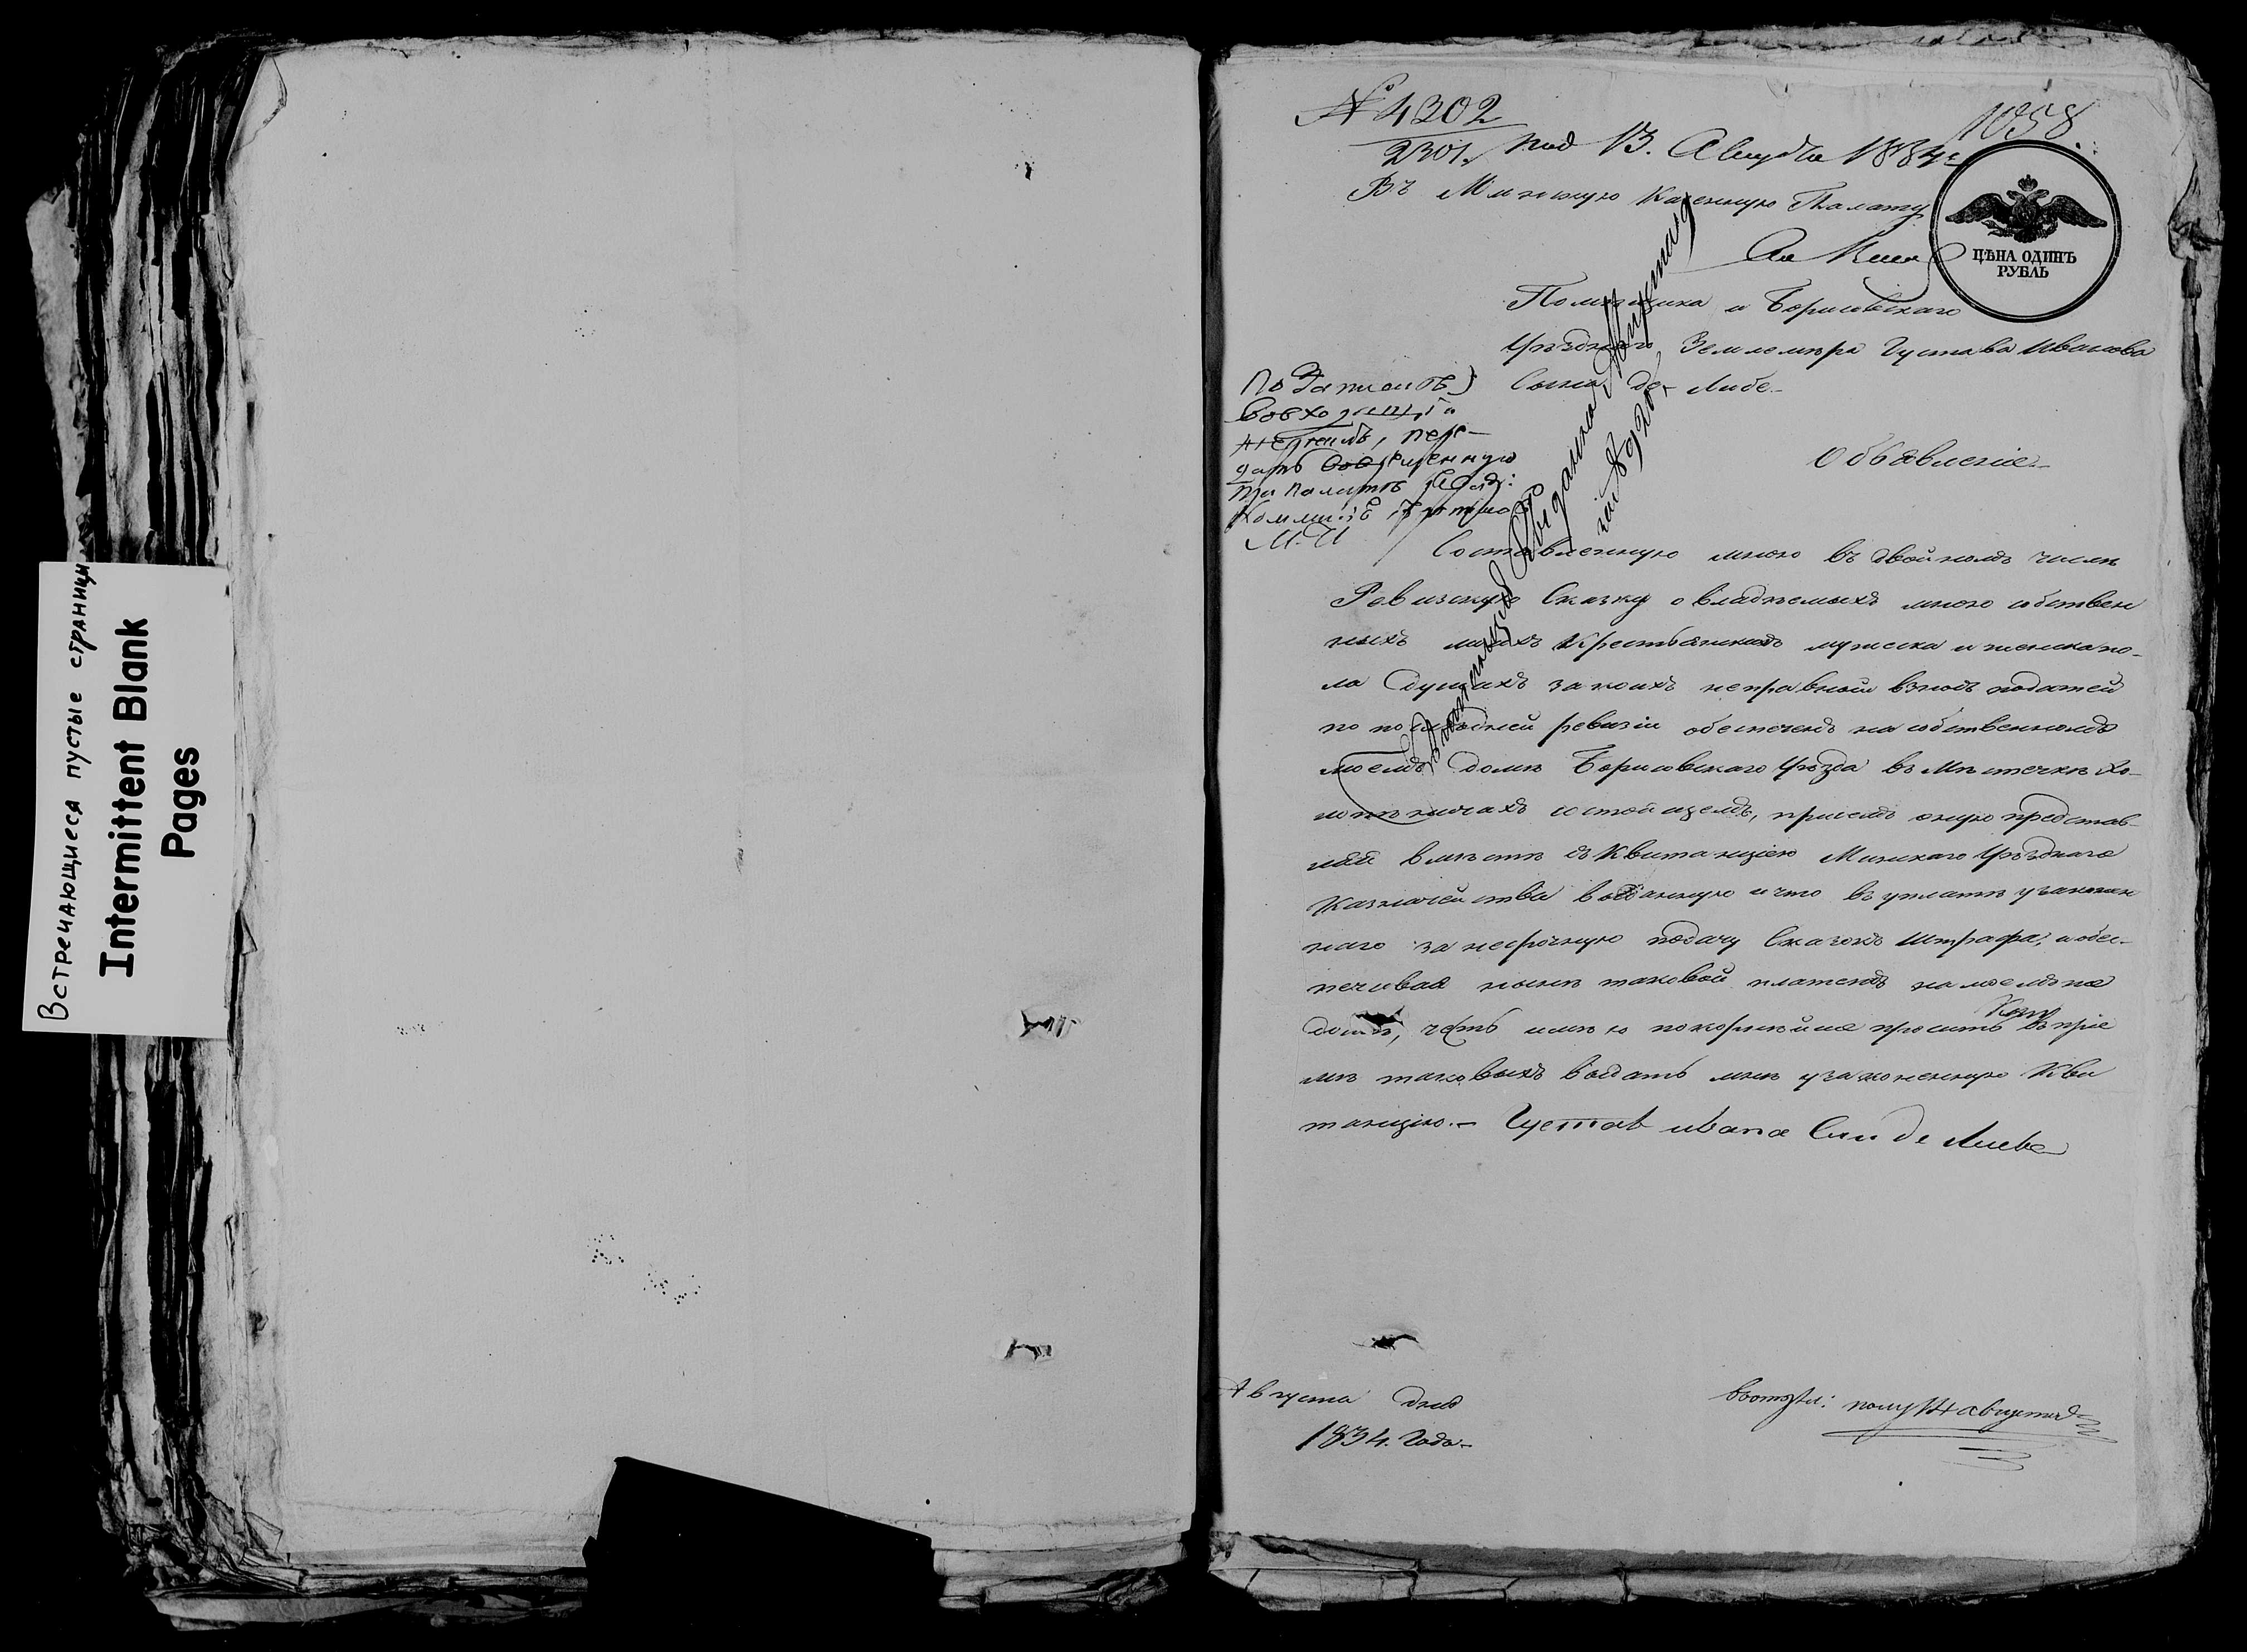 Встречающиеся пустые страницы
Intermittent Blank
Pages
№ 4302
2301.
1058
13. Августа 1834 г
Въ Минскую Казенную Палату
ЦѢНА ОДИНЪ
РУБЛЬ
Помѣщика и Борисовскаго
Уѣзднаго Землемѣра Густава Иванова
Сына де Либе
Объявленіе
Составленную мною въ двойномъ числѣ
Ревизскую Сказку о владѣемыхъ мною собствен
ныхъ моихъ Крестьянкахъ мужска и женска по-
ла душахъ за коихъ исправной взносъ податей
по послѣдней ревизіи обеспеченъ на собственномъ
моемъ домѣ Борисовскаго Уѣзда въ Мѣстечкѣ Хо-
лопѣничахъ состоящемъ, присемъ оную представ-
ляя вмѣстѣ съ Квитанціею Минскаго Уѣзднаго
Казначейства выданную и что въ уплатѣ узаконен
наго за несрочную подачу Сказокъ Штрафа, и обес-
печивая нынѣ таковой платежъ на моемъ же
домѣ, честь имѣю покорнѣйше просить въ пріе
мѣ таковыхъ выдать мнѣ узаконенную Кви
танцію.- Густав ивана Син де Либе
Августа дня
1834. Года
полу 14 августа